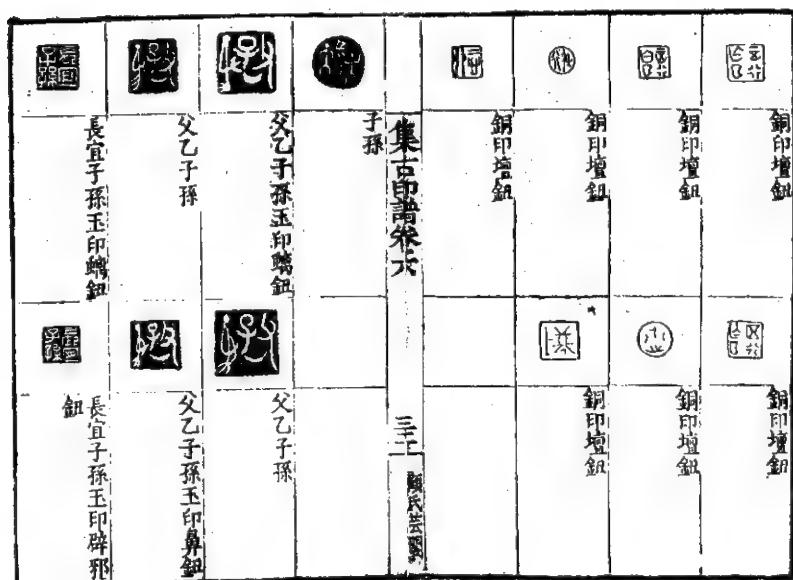 銅印壇鈕
銅印壇鈕
銅印壇鈕
銅印壇鈕
銅印壇鈕
銅印壇鈕
銅印壇鈕
集古印譜卷六
三十二
顧氏芸閣
子孫
父乙子孫玉印螭鈕
父乙子孫
父乙子孫
父乙子孫玉印鼻鈕
長宜子孫玉印螭鈕
長宜子孫玉印辟邪
鈕